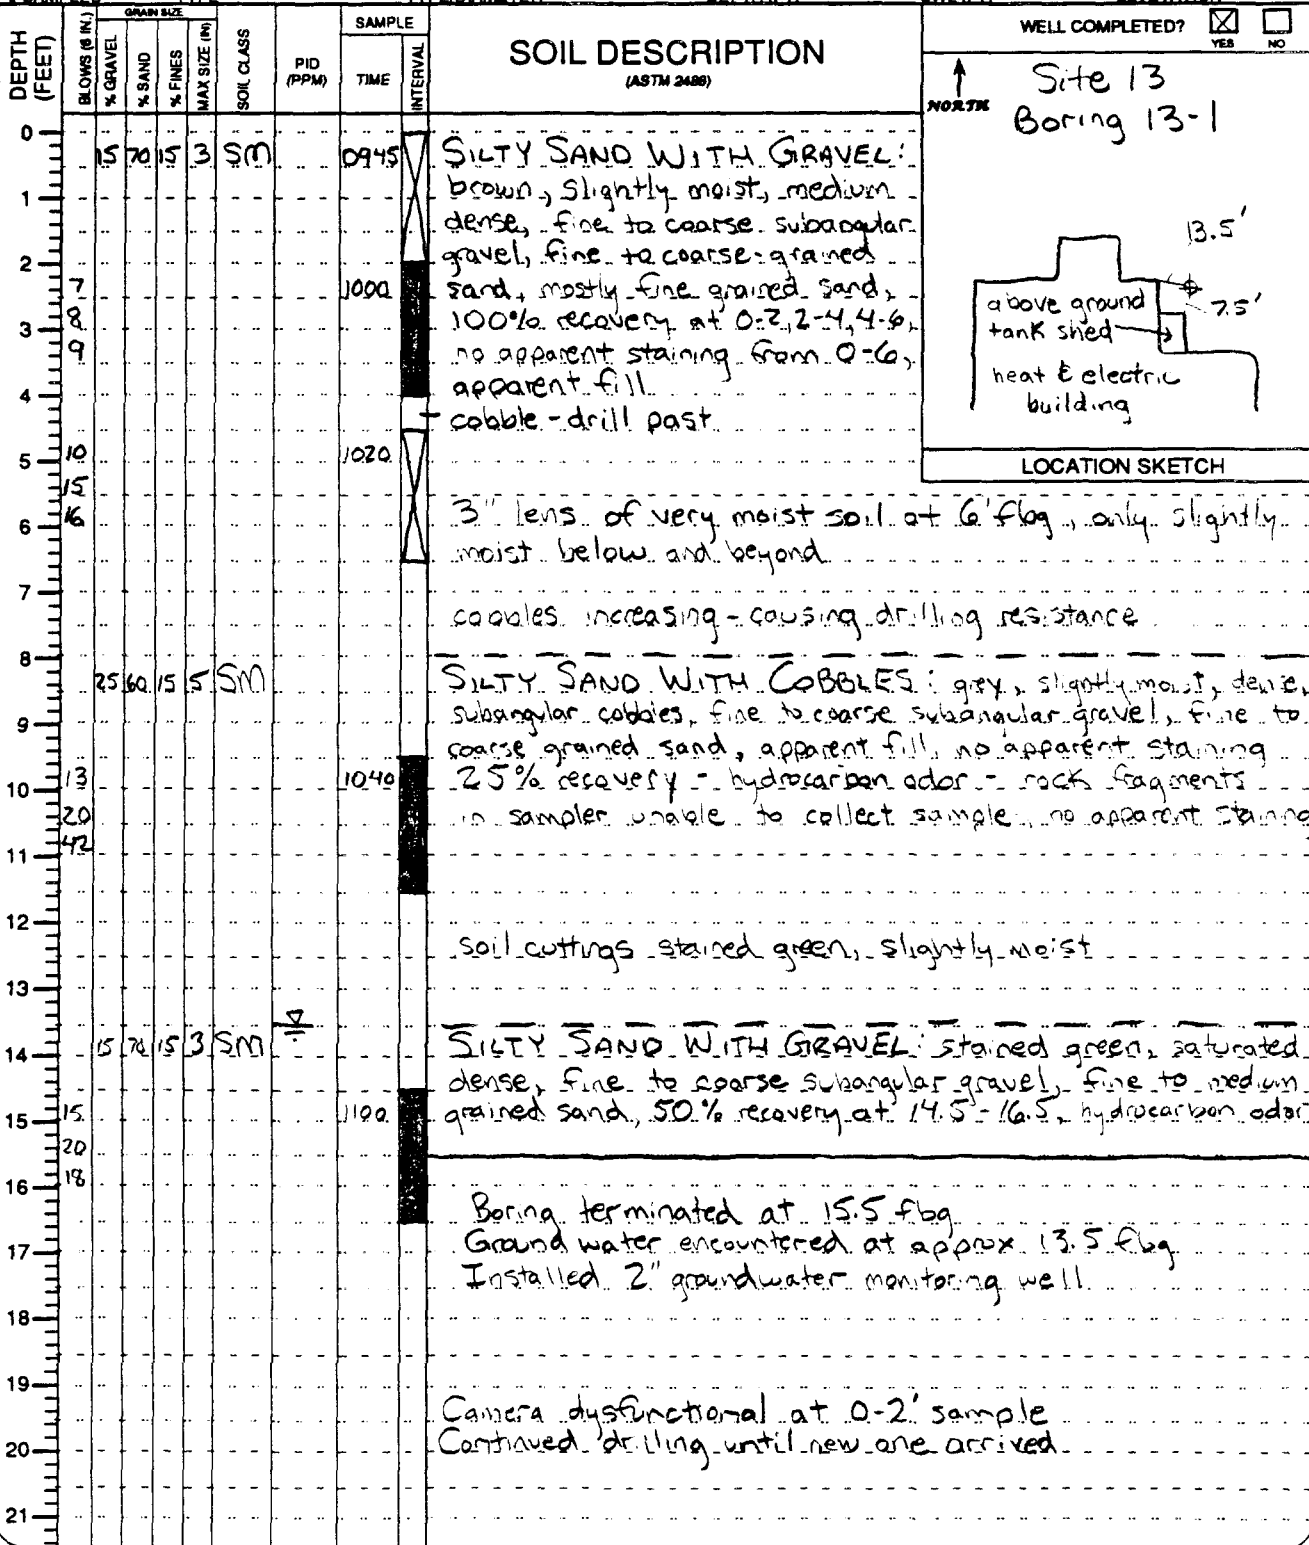 DEPTH (FEET)
BLOWS (6 IN.)
GRAIN SIZE
% GRAVEL
% SAND
% FINES
MAX SIZE (IN)
SOIL CLASS
PID (PPM)
SAMPLE
TIME
INTERVAL
SOIL DESCRIPTION
(ASTM 2488)
WELL COMPLETED? YES NO
NORTH
Site 13
Boring 13-1
13.5'
7.5'
above ground
tank shed
heat & electric
building
LOCATION SKETCH
0
15 70 15 3 SM 0945 SILTY SAND WITH GRAVEL:
brown, slightly moist, medium
1
dense, fine to coarse subangular
gravel, fine to coarse-grained
2
7 1000 sand, mostly fine grained sand,
8 100% recovery at 0-2, 2-4, 4-6,
3
9 no apparent staining from 0-6,
apparent fill
4
cobble - drill past
5 10 1020
15
3" lens of very moist soil at 6' fbg, only slightly
6 16
moist below and beyond
7
cobbles increasing - causing drilling resistance
8
25 60 15 5 SM SILTY SAND WITH COBBLES: grey, slightly moist, dense,
9
subangular cobbles, fine to coarse subangular gravel, fine to
coarse grained sand, apparent fill, no apparent staining
10 13 1040 25% recovery - hydrocarbon odor - rock fragments
20 in sampler unable to collect sample, no apparent staining
11 42
12
soil cuttings stained green, slightly moist
13
14 15 70 15 3 SM SILTY SAND WITH GRAVEL: stained green, saturated
dense, fine to coarse subangular gravel, fine to medium
15 15 1100 grained sand, 50% recovery at 14.5-16.5, hydrocarbon odor
20
16 18
Boring terminated at 15.5 fbg
17
Ground water encountered at approx 13.5 fbg
Installed 2" groundwater monitoring well
18
19
Camera dysfunctional at 0-2' sample
20
Continued drilling until new one arrived
21